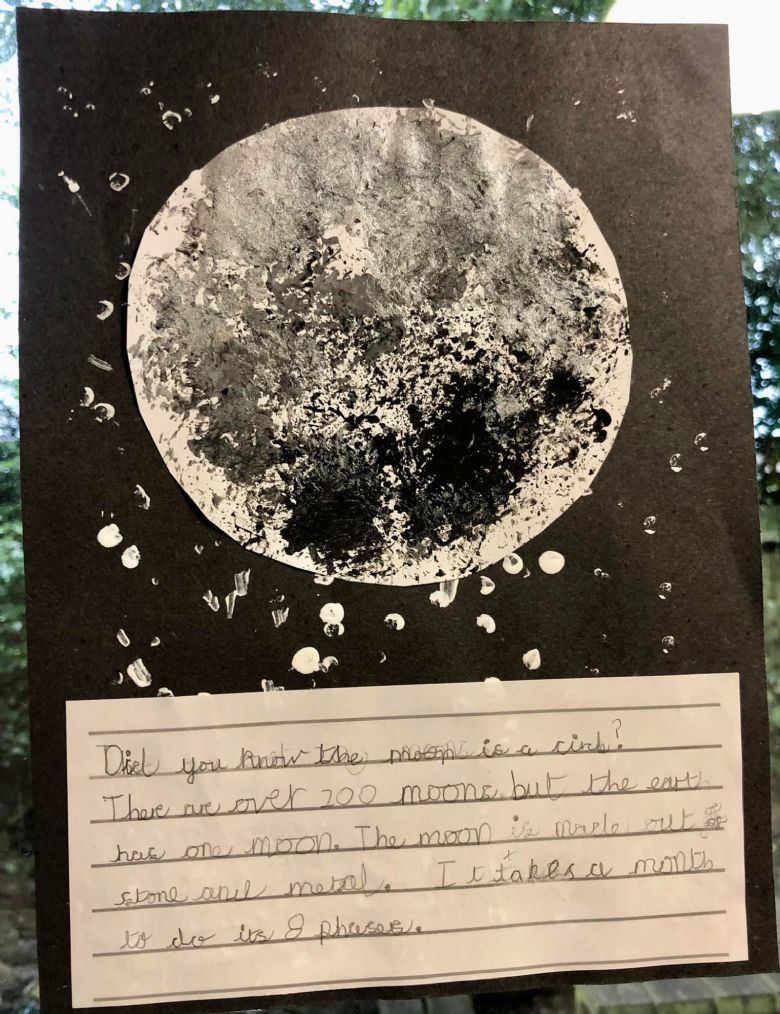 Did you know the moon is a circle?
There are over 200 moons but the earth
has one moon. The moon is made out of
stone and metal. It takes a month
to do its 8 phases.